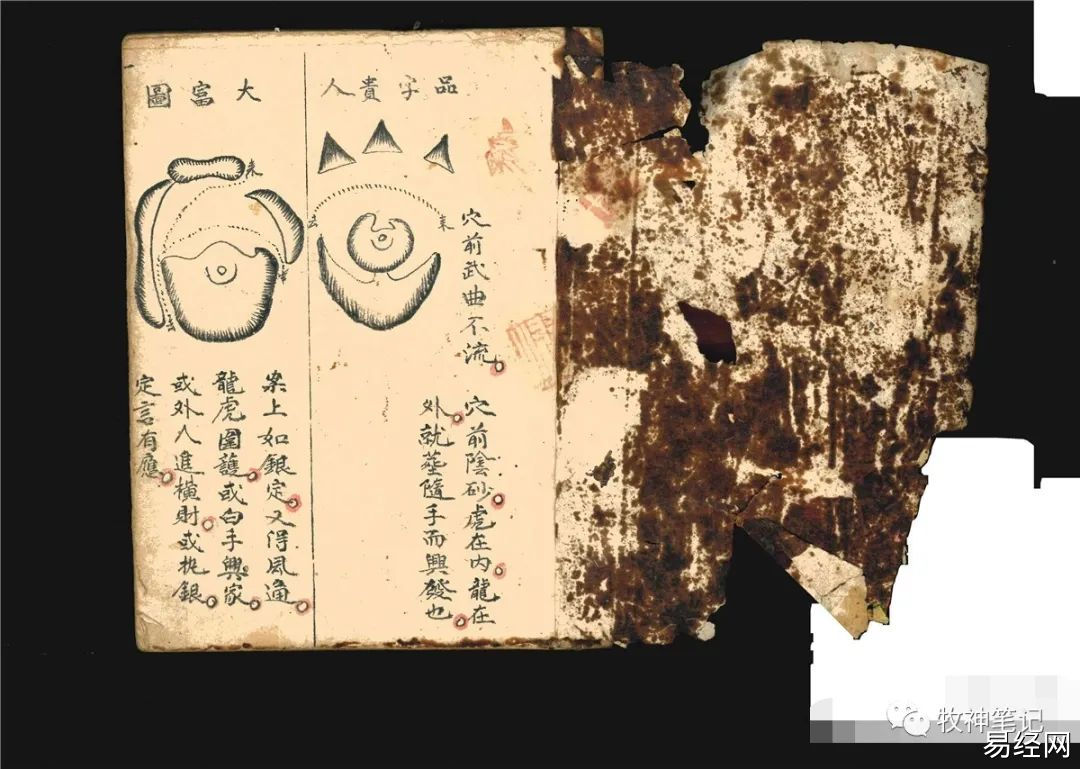 品字貴人
来
去
穴前武曲不流
穴前陰砂虎在内龍在
外就塋隨手而興發也
大富圖
来
案上如銀定又得風
龍虎圍護或白手興家
或外人進橫財或 銀
定言有應
牧神笔记
易经网